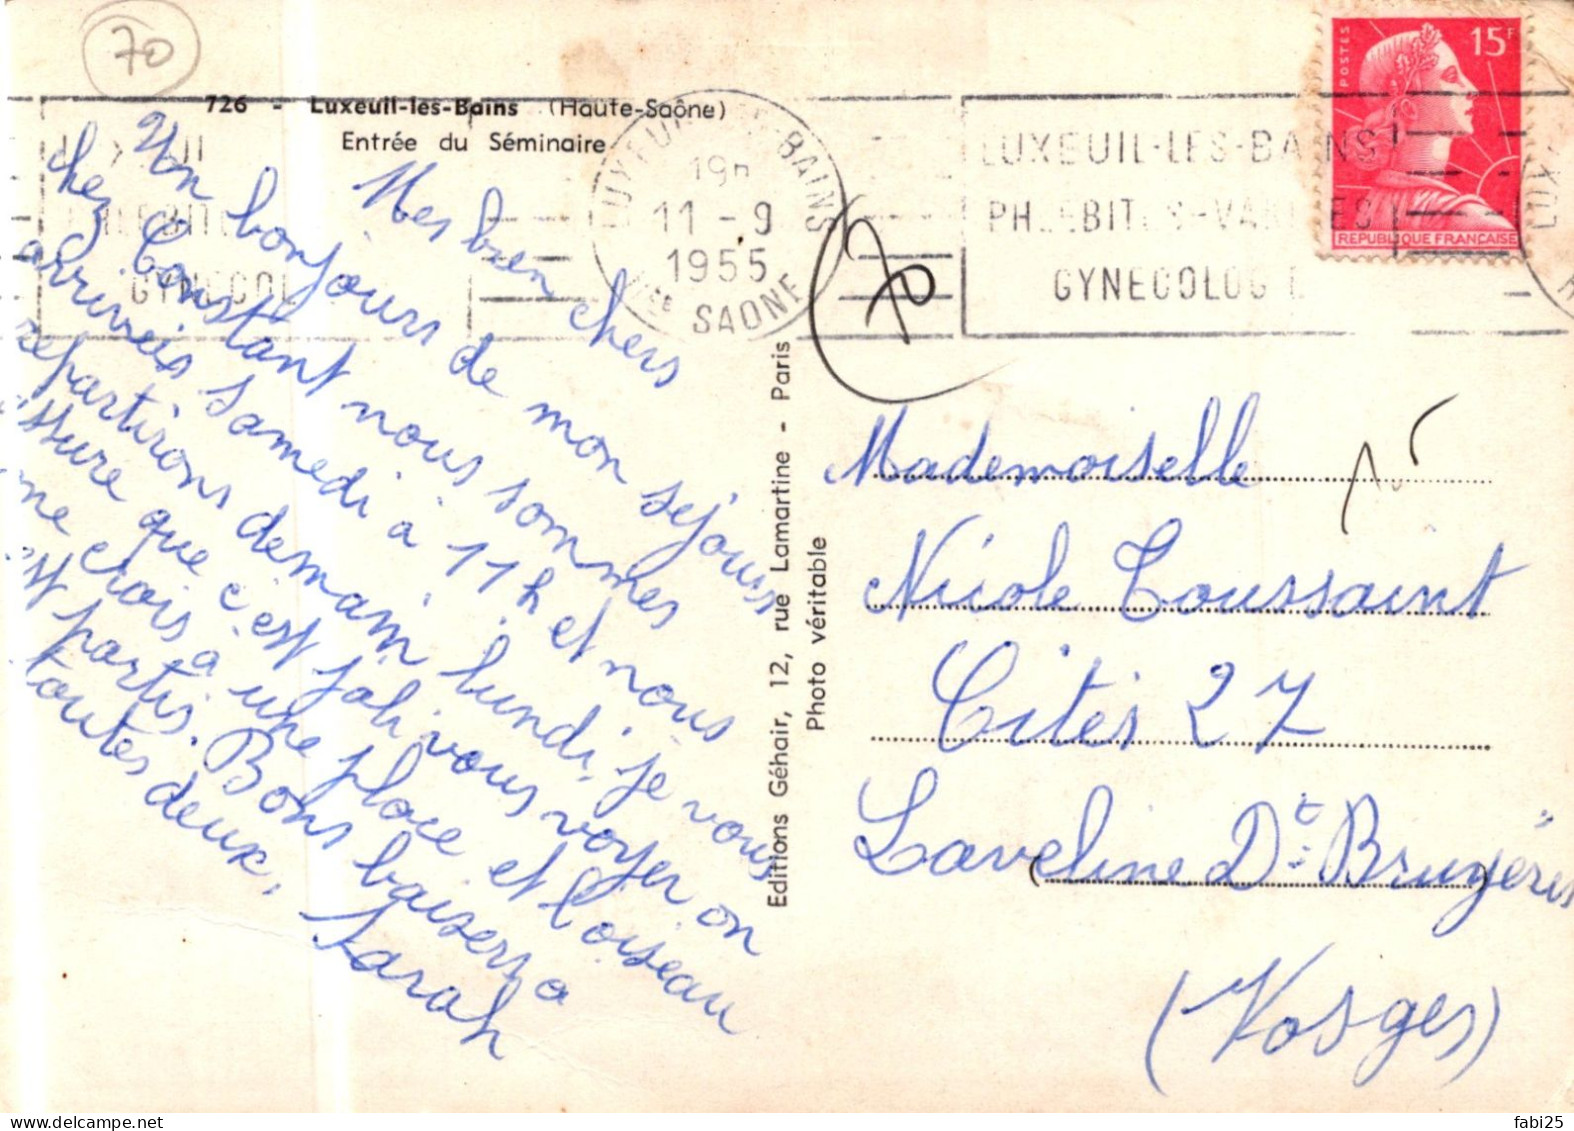 70
726 - Luxeuil-les-Bains (Haute-Saône)
Entrée du Séminaire
Mes bien chers
Un bonjours de mon séjours
chez Constant nous sommes
arriveis Samedi à 11h et nous
repartirons demain lundi, je vous
assure que c'est joli vous voyer on
ne crois a une place et l'oiseau
est partis. Bons baisers a
toutes deux, Sarah
Editions Géhair, 12, rue Lamartine - Paris
Photo véritable
LUXEUIL-LES-BAINS
19h
11-9
1955
Hte SAONE
LUXEUIL-LES-BAINS
PHLEBITES-VARICES
GYNECOLOGIE
POSTES
15F
REPUBLIQUE FRANÇAISE
70
15
Mademoiselle
Nicole Toussaint
Cités 27
Laveline Dt Bruyères
(Vosges)
fabi25